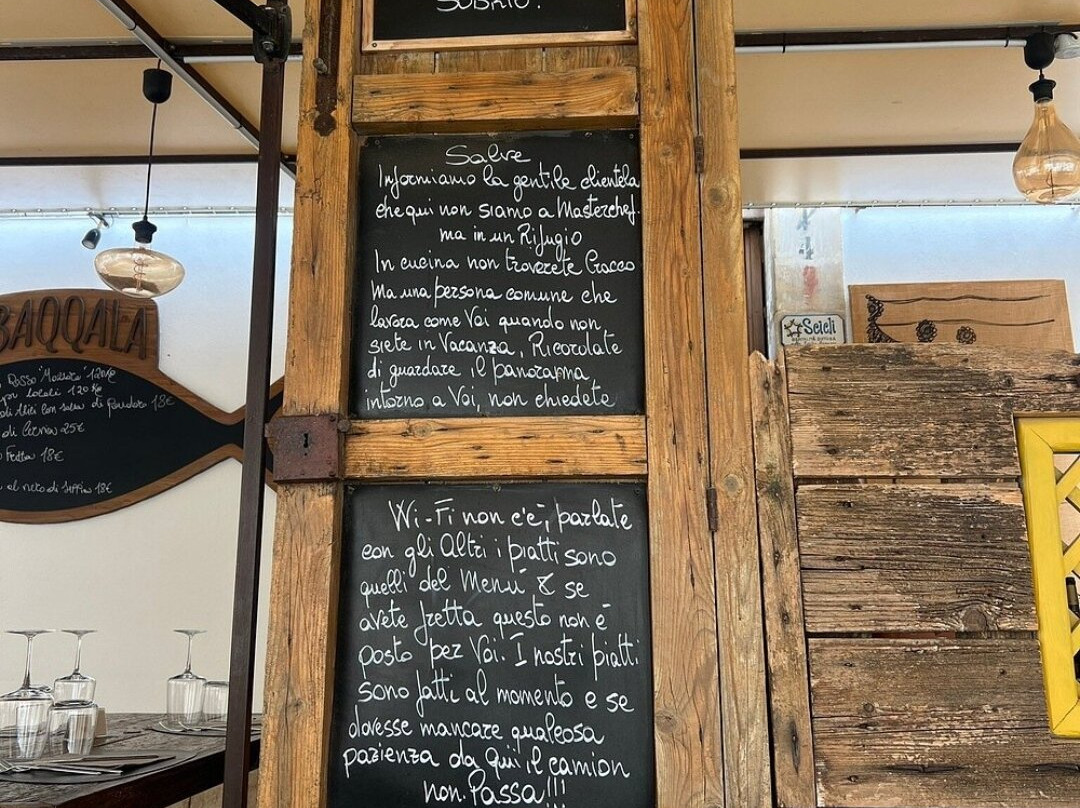 SUBRIO!
Salve
Informiamo la gentile clientela
che qui non siamo a Masterchef.
ma in un Rifugio
In cucina non troverete Cracco
Ma una persona comune che
lavora come Voi quando non
siete in Vacanza, Ricordate
di guardare il panorama
intorno a Voi, non chiedete
Wi-Fi non c'è, parlate
con gli Altri i piatti sono
quelli del Menù & se
avete fretta questo non è
posto per Voi. I nostri piatti
sono fatti al momento e se
dovesse mancare qualcosa
pazienza da qui il camion
non Passa!!!
BAQQALÀ
Rosso
120
di Alici con salsa di Pomodoro 18€
di Cernia 25€
Fritta 18€
al nero di seppia 18€
Scicli